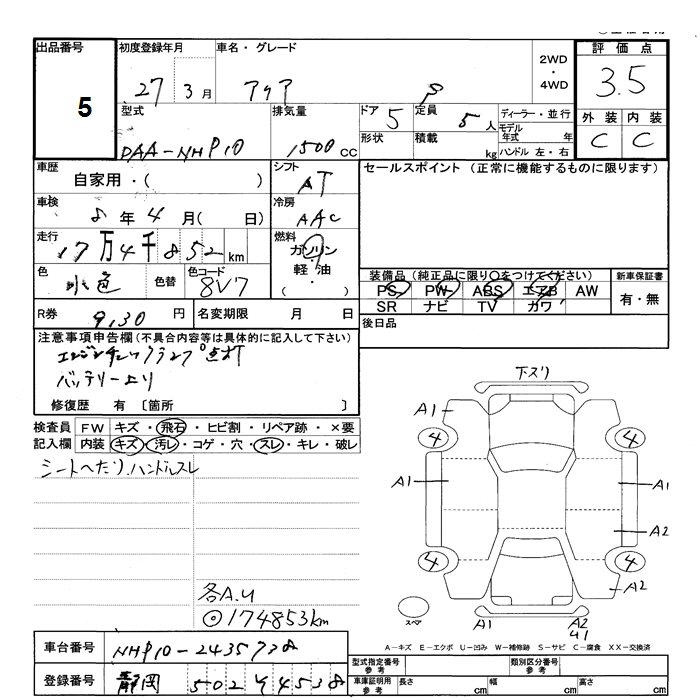 出品番号
5
初度登録年月
27 3月
車名・グレード
アクア
S
2WD
・
4WD
評価点
3.5
外装 内装
C C
型式
DAA-NHP10
排気量
1500 cc
ドア 5
定員 5 人
形状
積載 kg
ディーラー・並行
モデル年式 年
ハンドル 左・右
車歴
自家用・( )
シフト
AT
車検
8年4月( 日)
冷房
AAC
走行
17万4千852km
燃料
ガソリン
・軽油・
( )
色
水色
色替
色コード
8V7
R券 9,30 円
名変期限 月 日
セールスポイント (正常に機能するものに限ります)
装備品 (純正品に限り○をつけてください)
PS PW ABS エアB AW
SR ナビ TV カワ
新車保証書
有・無
後日品
注意事項申告欄(不具合内容等は具体的に記入して下さい)
エンジンチェックランプ点灯
バッテリー上り
修復歴 有〔箇所 〕
検査員記入欄
FW キズ・飛石・ヒビ割・リペア跡・×要
内装 キズ・汚レ・コゲ・穴・スレ・キレ・破レ
シートへたり、ハンドルスレ
各A.U
◎174853km
下スリ
A1
4 4
A1 A1
A2
4 4
A2
スペア
A1 A2
U1
A-キズ E-エクボ U-凹み W-補修跡 S-サビ C-腐食 XX-交換済
車台番号
NHP10-2435738
登録番号
静岡 502 そ 4538
型式指定番号 参考
類別区分番号 参考
車庫証明用 参考
長さ cm
幅 cm
高さ cm